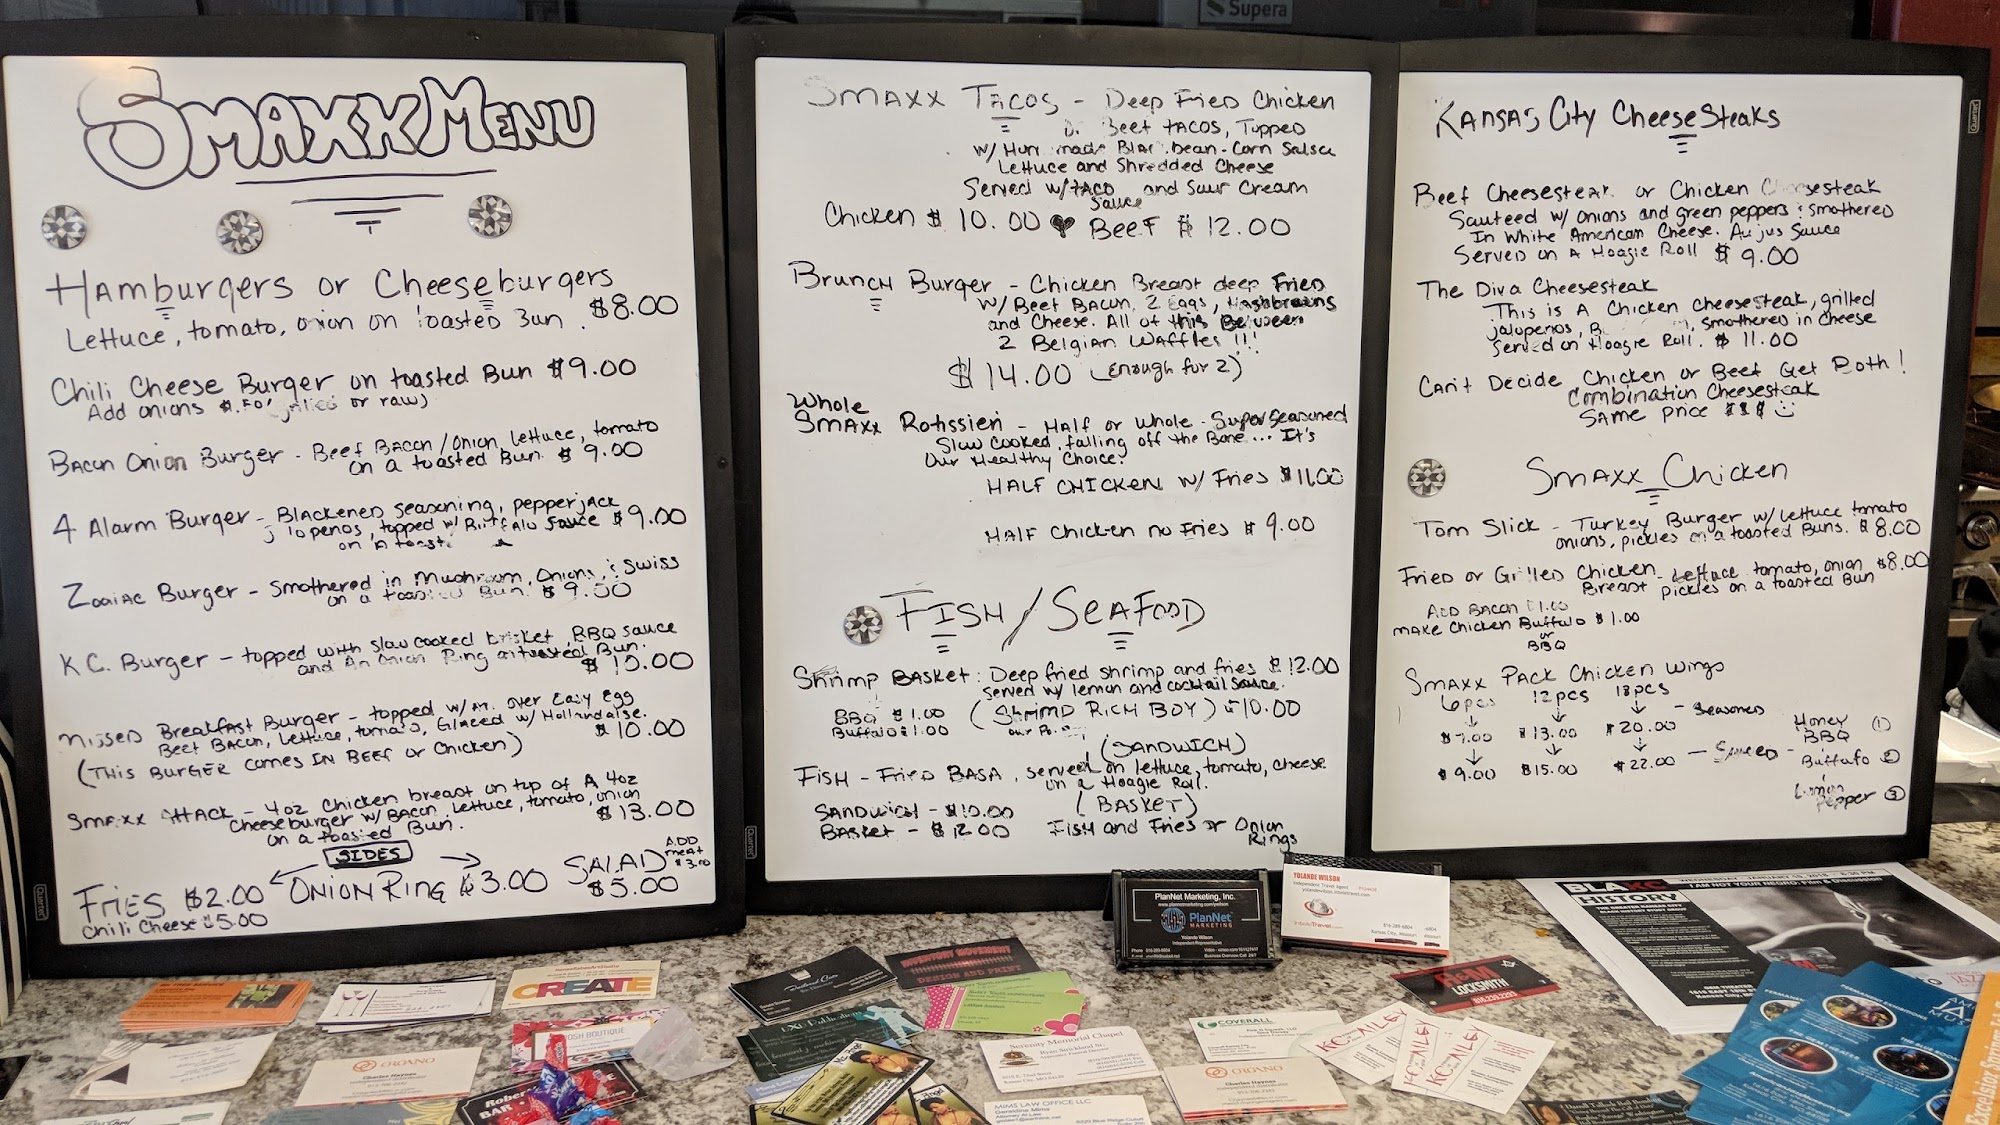 Supera
SMAXX MENU
Hamburgers or Cheeseburgers
Lettuce, tomato, onion on toasted Bun. $8.00
Chili Cheese Burger on toasted Bun $9.00
Add onions or raw)
Bacon Onion Burger - Beef Bacon/Onion, Lettuce, tomato
on a toasted Bun. $9.00
4 Alarm Burger - Blackened seasoning, pepperjack
topped w/ Buffalo sauce $9.00
on A toast
Zodiac Burger - Smothered in Mushroom, Onions, & Swiss
on a toasted Bun. $9.00
K.C. Burger - topped with slow cooked brisket, BBQ sauce
and An Onion Ring on toasted Bun.
$10.00
Missed Breakfast Burger - topped w/ An over Easy Egg
Beef Bacon, Lettuce, tomato, Glazed w/ Hollandaise.
$10.00
(THIS BURGER comes IN BEEF or Chicken)
Smaxx Attack - 4oz Chicken breast on top of A 4oz
Cheeseburger w/ Bacon, Lettuce, tomato, onion
on a toasted Bun. $13.00
SIDES
Fries $2.00 Onion Ring $3.00 SALAD $5.00
ADD meat $3.00
Chili Cheese $5.00
Smaxx Tacos - Deep Fried Chicken
Beef tacos, Topped
w/ made Bean-Corn Salsa
Lettuce and Shredded Cheese
Served w/ taco sauce and Sour Cream
Chicken $10.00 Beef $12.00
Brunch Burger - Chicken Breast deep Fried
w/ Beef Bacon, 2 Eggs, Hashbrowns
and Cheese. All of this Between
2 Belgian Waffles !!!
$14.00 (Enough for 2)
Whole
Smaxx Rotissieri - Half or Whole - Super Seasoned
Slow Cooked, falling off the Bone... It's
Our Healthy Choice.
HALF CHICKEN w/ Fries $11.00
HALF Chicken no Fries $9.00
FISH / SEAFOOD
Shrimp Basket: Deep fried shrimp and fries $12.00
served w/ lemon and cocktail sauce.
BBQ $1.00 (SHRIMP RICH BOY) - $10.00
Buffalo $1.00 our Po
(SANDWICH)
Fish - Fried BASA, served on lettuce, tomato, cheese
on a Hoagie Roll.
Sandwich - $10.00 (BASKET)
Basket - $12.00 Fish and Fries or Onion
Rings
Kansas City CheeseSteaks
Beef Cheesesteak or Chicken Cheesesteak
Sauteed w/ onions and green peppers & smothered
In White American Cheese. Au jus Sauce
Served on A Hoagie Roll $9.00
The Diva Cheesesteak
This is A Chicken cheesesteak, grilled
jalapenos, smothered in cheese
Served on Hoagie Roll. $11.00
Can't Decide Chicken or Beef Get Both!
Combination Cheesesteak
Same price $$$
Smaxx Chicken
Tom Slick - Turkey Burger w/ lettuce tomato
onions, pickles on a toasted Buns. $8.00
Fried or Grilled Chicken - Lettuce, tomato, onion $8.00
Breast pickles on a toasted Bun
Add Bacon $1.00
Make Chicken Buffalo $1.00
or
BBQ
Smaxx Pack Chicken Wings
6pcs 12pcs 18pcs
$7.00 $13.00 $20.00 - Seasoned
$9.00 $15.00 $22.00 - Sauced
Honey BBQ 1
Buffalo 2
Lemon Pepper 3
Quartet
PlanNet Marketing, Inc.
PlanNet
MARKETING
Yolande Wilson
Independent Representative
YOLANDE WILSON
Independent Travel Agent
BLAKC
HISTORY
I AM NOT YOUR NEGRO: Film & Discussion
CREATE
LOCKSMITH
COVERALL
Serenity Memorial Chapel
Ryan Strickland Sr.
ORGANO
Charles Haynes
ORGANO
Charles Haynes
MIMS LAW OFFICE LLC
Geraldine Mims
Attorney At Law
DESIGN AND PRINT
BOUTIQUE
BAR